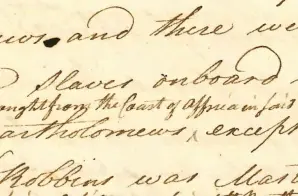 ews and there we
Slaves onboard
ought from the Coast of Affrica in said
artholomews, except
Robbins was Mast